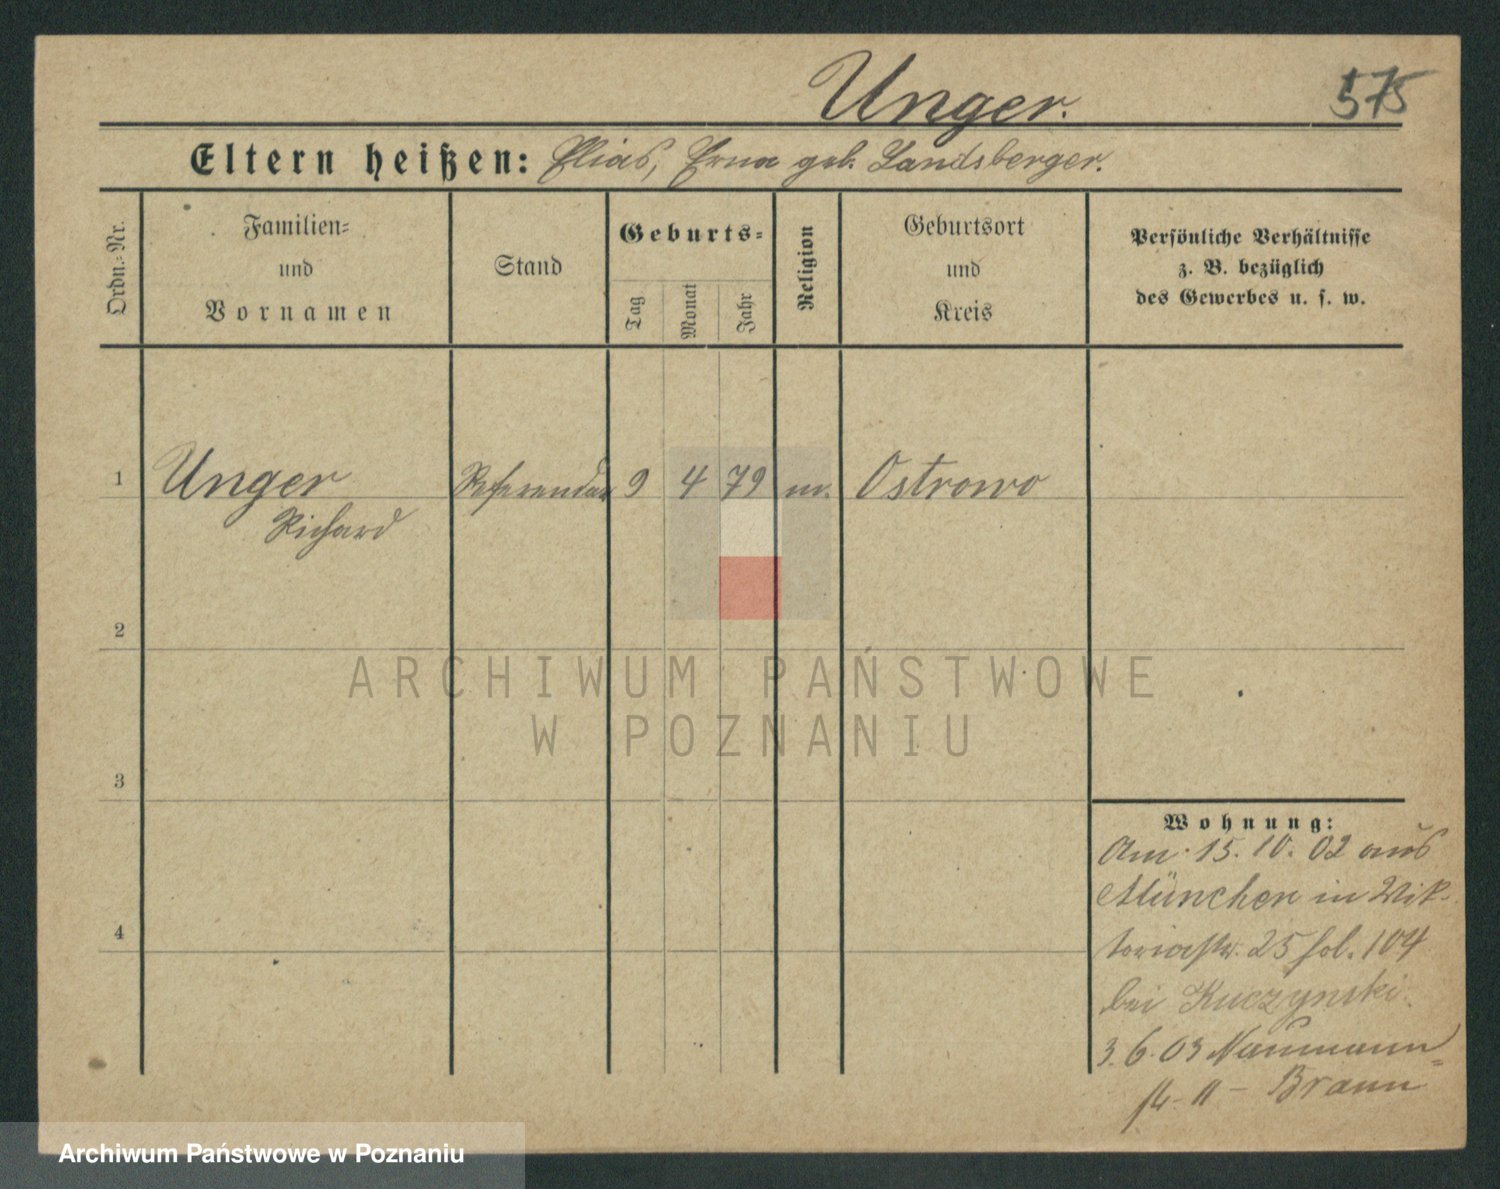 Unger.
575
Eltern heißen: Elias, Erna geb. Landsberger.
Ordn.-Nr.
Familien-
und
Vornamen
Stand
Geburts-
Tag
Monat
Jahr
Religion
Geburtsort
und
Kreis
Persönliche Verhältnisse
z. B. bezüglich
des Gewerbes u. s. w.
1 Unger Referendar 9 4 79 m. Ostrowo
Richard
2
3
4
Wohnung:
Am 15. 10. 02 aus
München in Vik-
toriastr. 25 fol. 104
bei Kuczynski.
3. 6. 03 Naumann-
str. 11 - Braun
ARCHIWUM PAŃSTWOWE
W POZNANIU
Archiwum Państwowe w Poznaniu